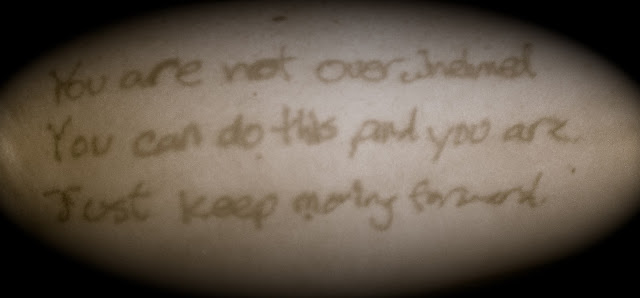 You are not overwhelmed
You can do this and you are.
Just keep moving forward.